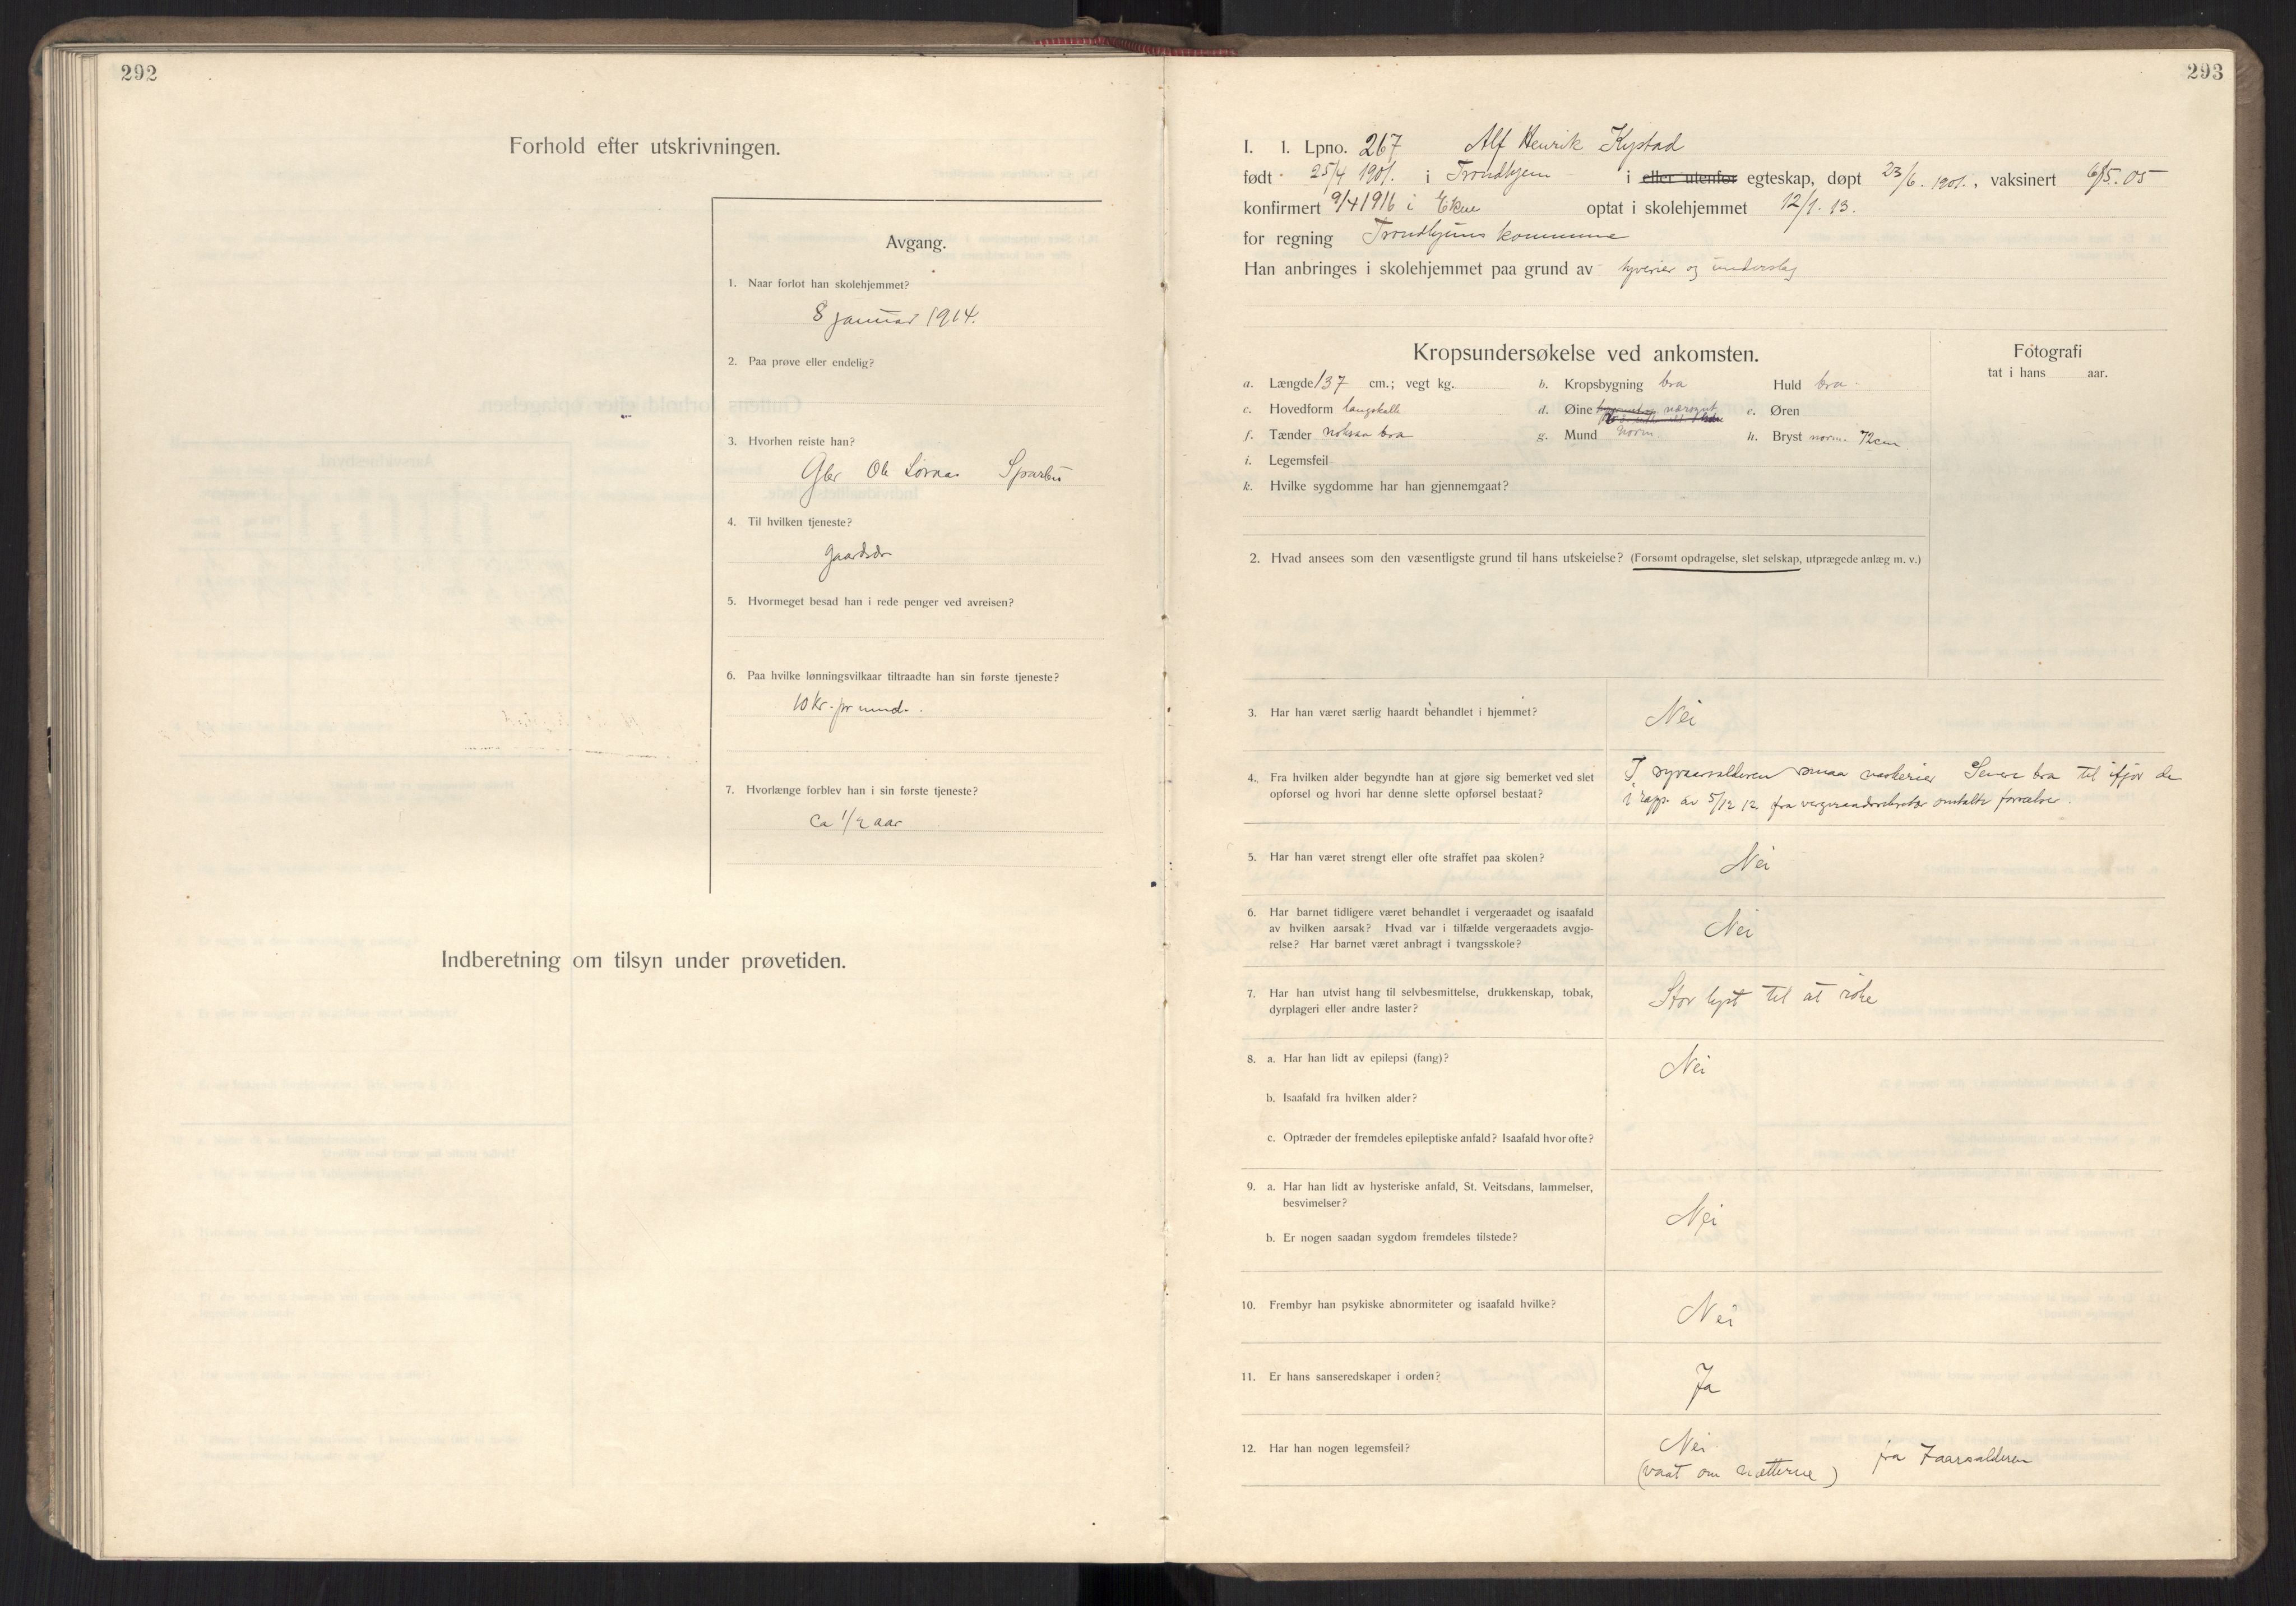 292
Forhold efter utskrivningen.
Avgang.
1. Naar forlot han skolehjemmet?
8 januar 1914.
2. Paa prøve eller endelig?
3. Hvorhen reiste han?
Gbr Ole Sparbu
4. Til hvilken tjeneste?
gaardsdr
5. Hvormeget besad han i rede penger ved avreisen?
6. Paa hvilke lønningsvilkaar tiltraadte han sin første tjeneste?
10 kr. pr mnd.
7. Hvorlænge forblev han i sin første tjeneste?
Ca 1/2 aar
Indberetning om tilsyn under prøvetiden.
293
I. 1. Lpno. 267 Alf Henrik Kystad
født 25/4 1901. i Trondhjem i eller utenfor egteskap, døpt 23/6. 1901., vaksinert 6/5. 05
konfirmert 9/4 1916 i Ekne optat i skolehjemmet 12/1. 13.
for regning Trondhjems kommune
Han anbringes i skolehjemmet paa grund av tyverier og underslag
Kropsundersøkelse ved ankomsten.
Fotografi
tat i hans aar.
a. Længde 137 cm.; vegt kg. b. Kropsbygning bra Huld bra.
c. Hovedform langskalle d. Øine nærsynt e. Øren
f. Tænder noksaa bra g. Mund norm. h. Bryst norm. 72cm
i. Legemsfeil
k. Hvilke sygdomme har han gjennemgaat?
2. Hvad ansees som den væsentligste grund til hans utskeielse? (Forsømt opdragelse, slet selskap, utprægede anlæg m. v.)
3. Har han været særlig haardt behandlet i hjemmet?
Nei
4. Fra hvilken alder begyndte han at gjøre sig bemerket ved slet
opførsel og hvori har denne slette opførsel bestaat?
I syvaarsalderen smaa naskerier Senere bra til ifjor de
i rapp. av 5/12 12. fra vergeraadssekretær omtalte forseelser.
5. Har han været strengt eller ofte straffet paa skolen?
Nei
6. Har barnet tidligere været behandlet i vergeraadet og isaafald
av hvilken aarsak? Hvad var i tilfælde vergeraadets avgjø-
relse? Har barnet været anbragt i tvangsskole?
Nei
7. Har han utvist hang til selvbesmittelse, drukkenskap, tobak,
dyrplageri eller andre laster?
Stor lyst til at röke
8. a. Har han lidt av epilepsi (fang)?
Nei
b. Isaafald fra hvilken alder?
c. Optræder der fremdeles epileptiske anfald? Isaafald hvor ofte?
9. a. Har han lidt av hysteriske anfald, St. Veitsdans, lammelser,
besvimelser?
Nei
b. Er nogen saadan sygdom fremdeles tilstede?
10. Frembyr han psykiske abnormiteter og isaafald hvilke?
Nei
11. Er hans sanseredskaper i orden?
Ja
12. Har han nogen legemsfeil?
Nei
(vaat om nætterne) fra 7aarsalderen